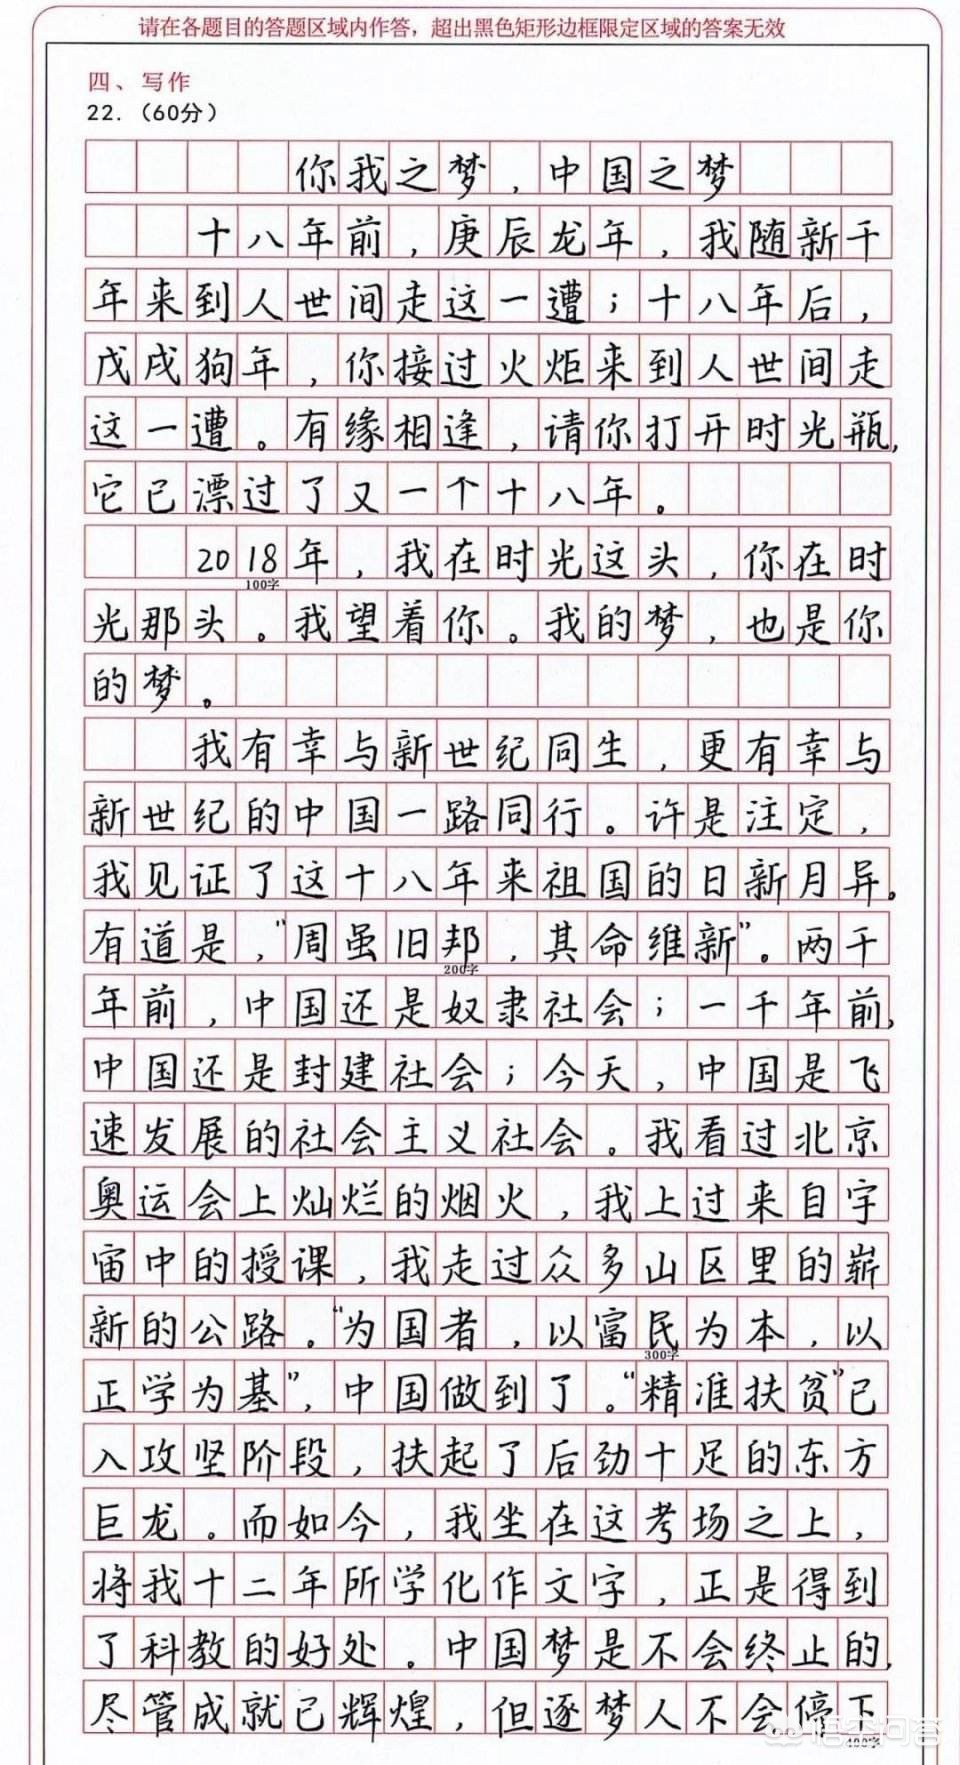 请在各题目的答题区域内作答，超出黑色矩形边框限定区域的答案无效
四、写作
22.（60分）
你我之梦，中国之梦
十八年前，庚辰龙年，我随新千
年来到人世间走这一遭；十八年后，
戊戌狗年，你接过火炬来到人世间走
这一遭。有缘相逢，请你打开时光瓶，
它已漂过了又一个十八年。
2018年，我在时光这头，你在时
100字
光那头。我望着你。我的梦，也是你
的梦。
我有幸与新世纪同生，更有幸与
新世纪的中国一路同行。许是注定，
我见证了这十八年来祖国的日新月异。
有道是，“周虽旧邦，其命维新”。两千
200字
年前，中国还是奴隶社会；一千年前，
中国还是封建社会；今天，中国是飞
速发展的社会主义社会。我看过北京
奥运会上灿烂的烟火，我上过来自宇
宙中的授课，我走过众多山区里的崭
新的公路。“为国者，以富民为本，以
300字
正学为基”，中国做到了。“精准扶贫”已
入攻坚阶段，扶起了后劲十足的东方
巨龙。而如今，我坐在这考场之上，
将我十二年所学化作文字，正是得到
了科教的好处。中国梦是不会终止的，
尽管成就已辉煌，但逐梦人不会停下
400字
悟空问答